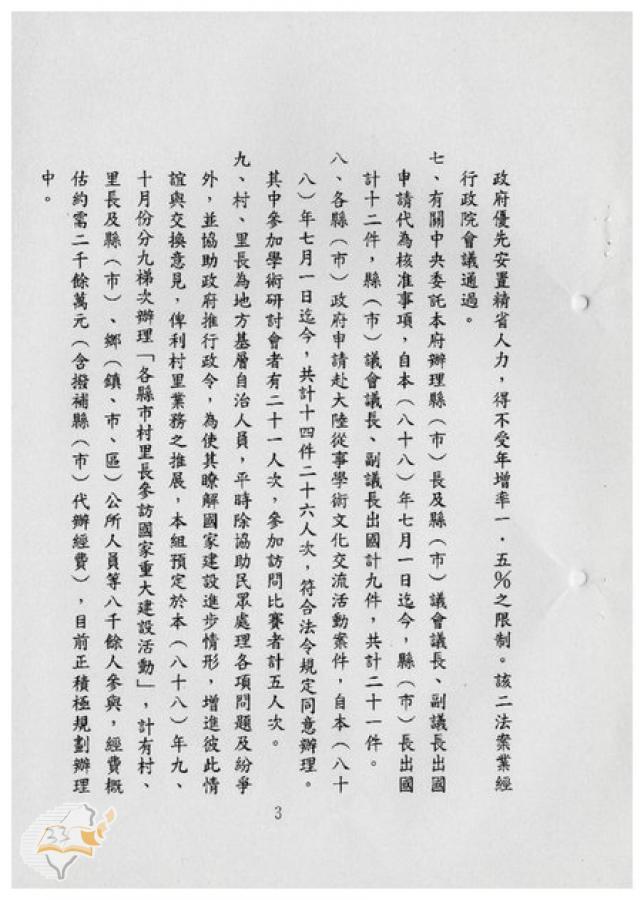 政府優先安置精省人力，得不受年增率一．五％之限制。該二法案業經
行政院會議通過。
七、有關中央委託本府辦理縣（市）長及縣（市）議會議長、副議長出國
申請代為核准事項，自本（八十八）年七月一日迄今，縣（市）長出國
計十二件，縣（市）議會議長、副議長出國計九件，共計二十一件。
八、各縣（市）政府申請赴大陸從事學術文化交流活動案件，自本（八十
八）年七月一日迄今，共計十四件二十六人次，符合法令規定同意辦理。
其中參加學術研討會者有二十一人次，參加訪問比賽者計五人次。
九、村、里長為地方基層自治人員，平時除協助民眾處理各項問題及紛爭
外，並協助政府推行政令，為使其瞭解國家建設進步情形，增進彼此情
誼與交換意見，俾利村里業務之推展，本組預定於本（八十八）年九、
十月份分九梯次辦理「各縣市村里長參訪國家重大建設活動」，計有村、
里長及縣（市）、鄉（鎮、市、區）公所人員等八千餘人參與，經費概
估約需二千餘萬元（含撥補縣（市）代辦經費），目前正積極規劃辦理
中。
3